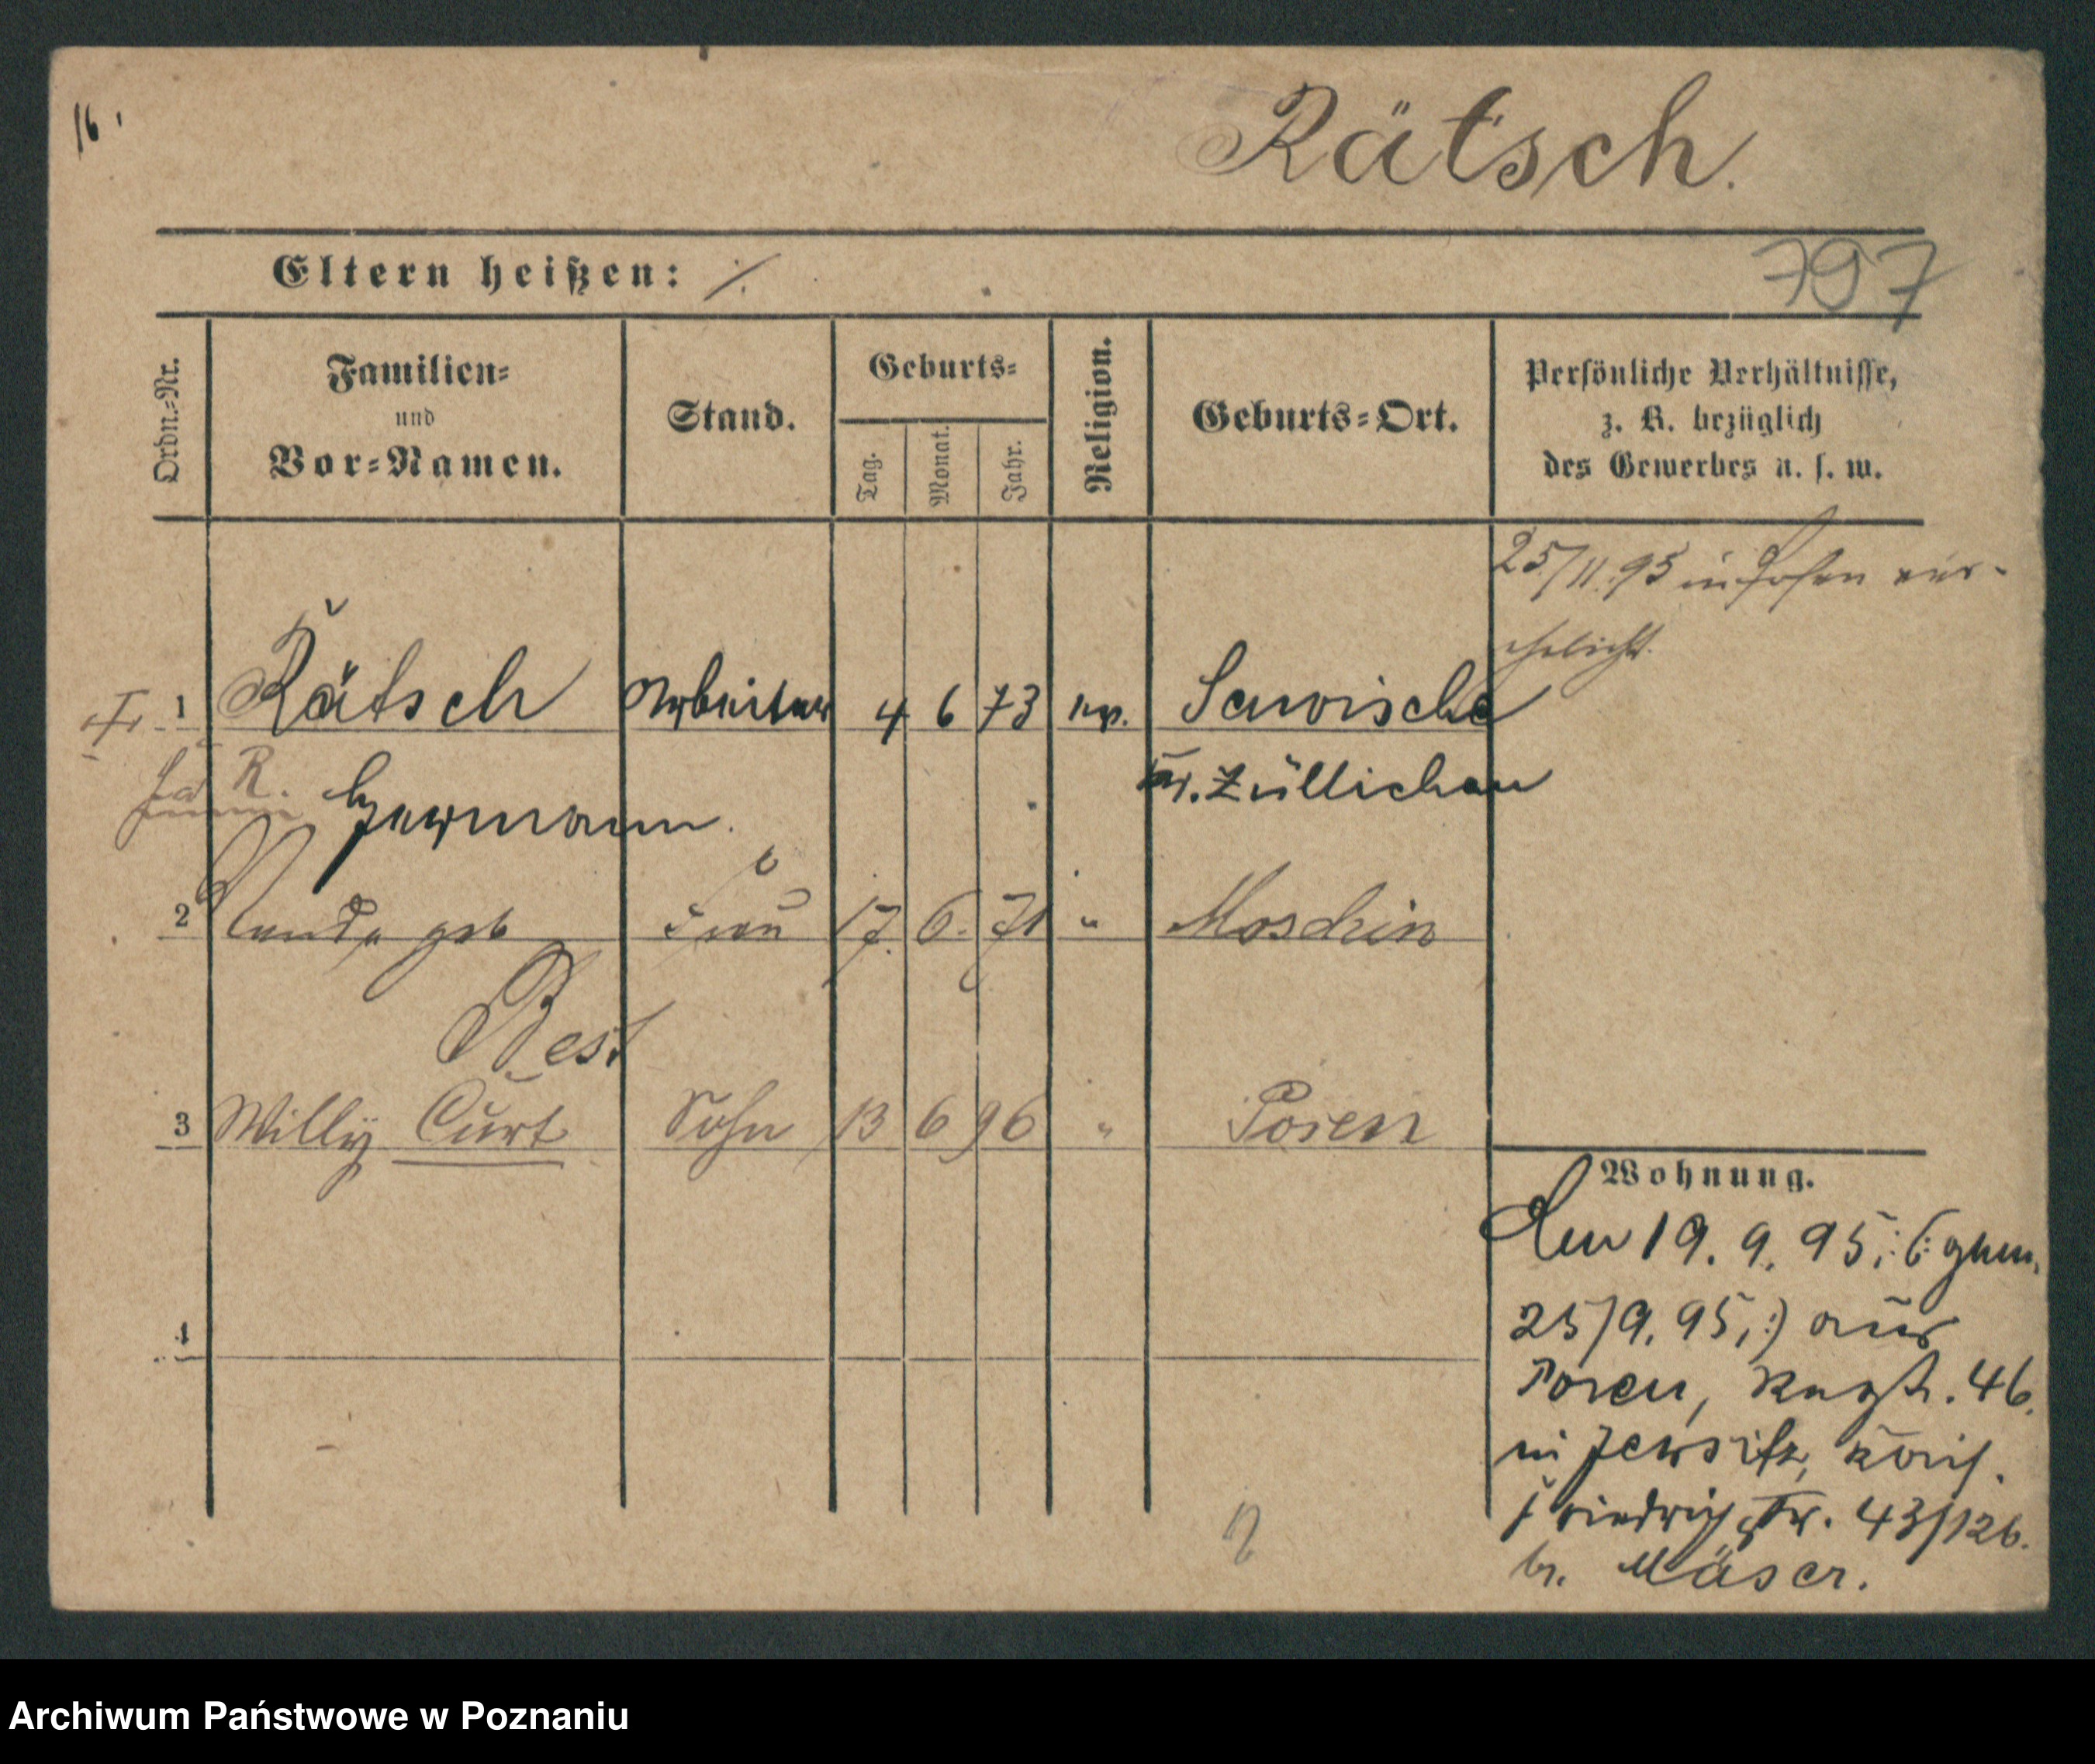 16.
Rätsch.
Eltern heißen: ./.
797
Ordn.-Nr.
Familien-
und
Vor-Namen.
Stand.
Geburts-
Tag.
Monat.
Jahr.
Religion.
Geburts-Ort.
Persönliche Verhältnisse,
z. B. bezüglich
des Gewerbes u. s. w.
25/11.95 in Posen ver-
ehelicht.
1 Rätsch Arbeiter 4 6 73 ev. Sawische
R. Hermann. Kr. Züllichau
2 geb Frau 17. 6. 71 " Moschin
Best
3 Willy Curt Sohn 13 6 96 " Posen
4
Wohnung.
Den 19. 9. 95, (: gem.
25/9. 95, :) aus
Posen, 46.
in Jersitz, Kais.
Friedrichstr. 43/126.
b. Mäser.
Archiwum Państwowe w Poznaniu